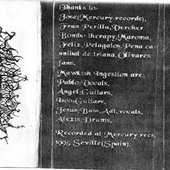 Thanks to:
Jose(Mercury records),
Fran Perilla, Dercher
Bombo therapy, Maroma,
Feliz, Pelagalos, Pena ca
nnibal de triana, Olivares
fans.
Mawkish Ingestion are:
Pablo:Vocals,
Angel:Guitars,
Isco:Guitars,
Jesus:Bass, Adl, vocals,
Alexis:Drums.
Recorded at Mercury recs
1995 Seville(Spain).